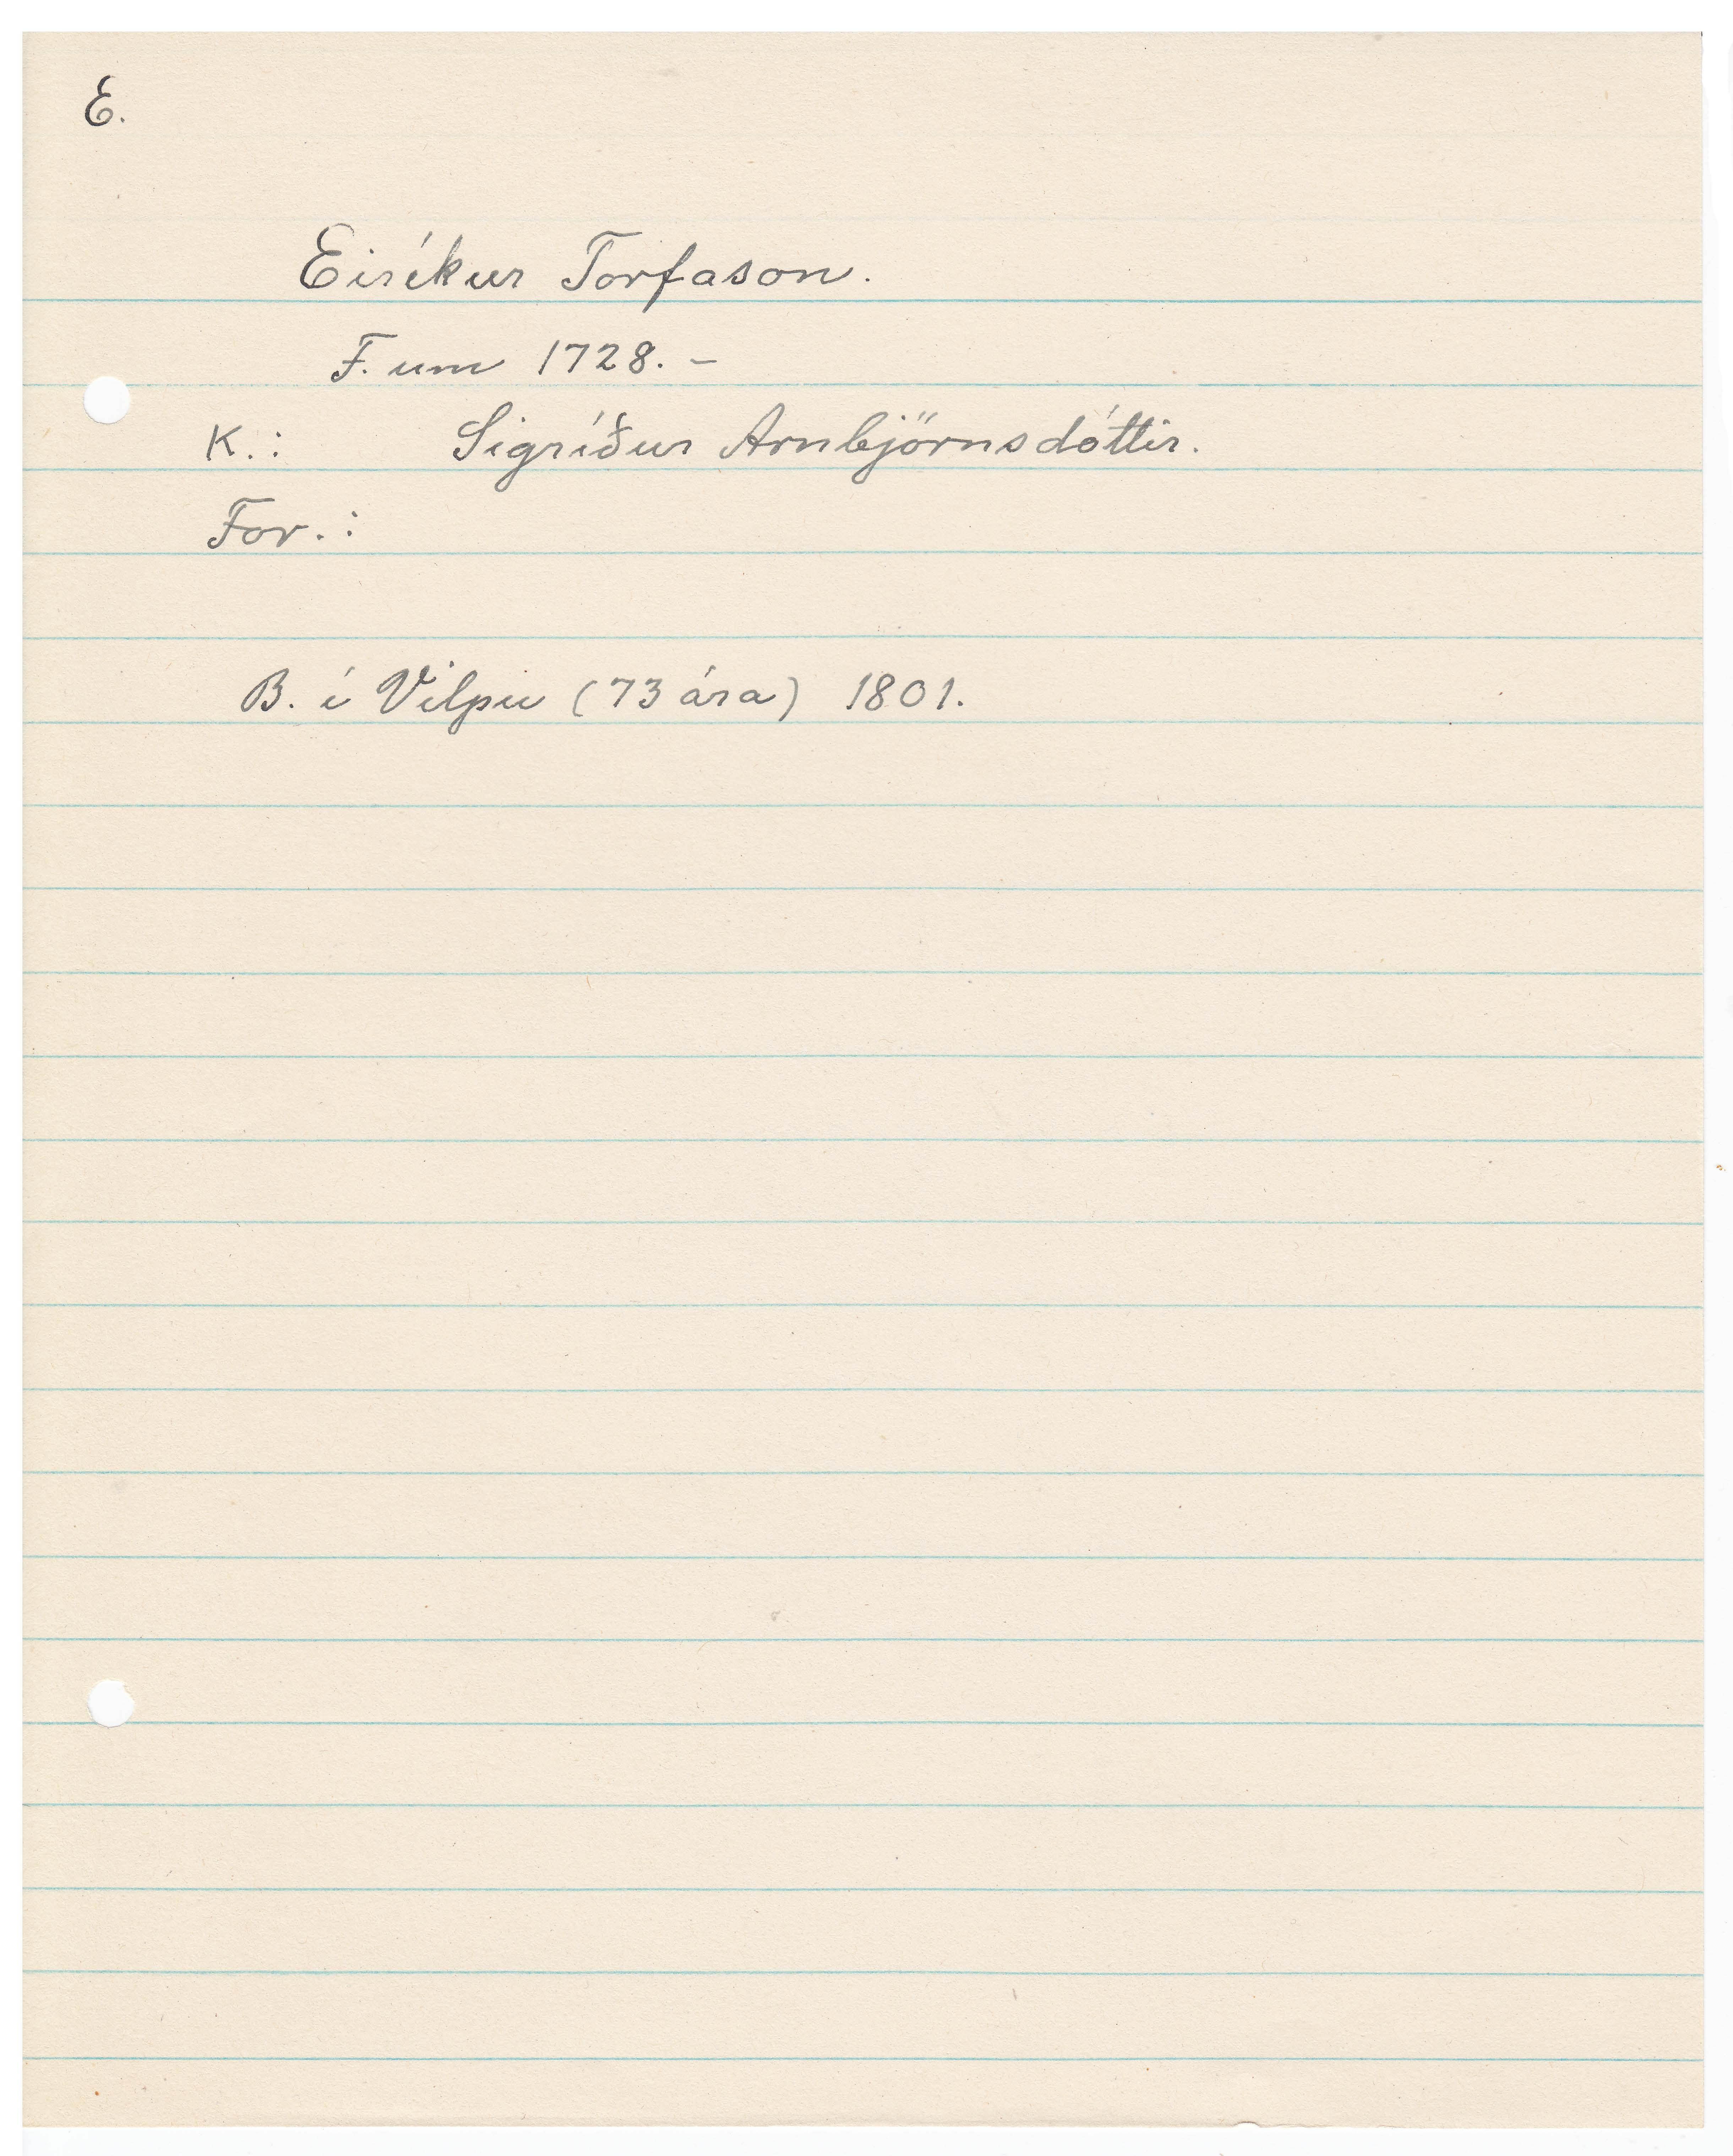 E.
Eiríkur Torfason.
F. um 1728. –
K.: Sigríður Arnbjörnsdóttir.
For.:
B. í Vilpu (73 ára) 1801.